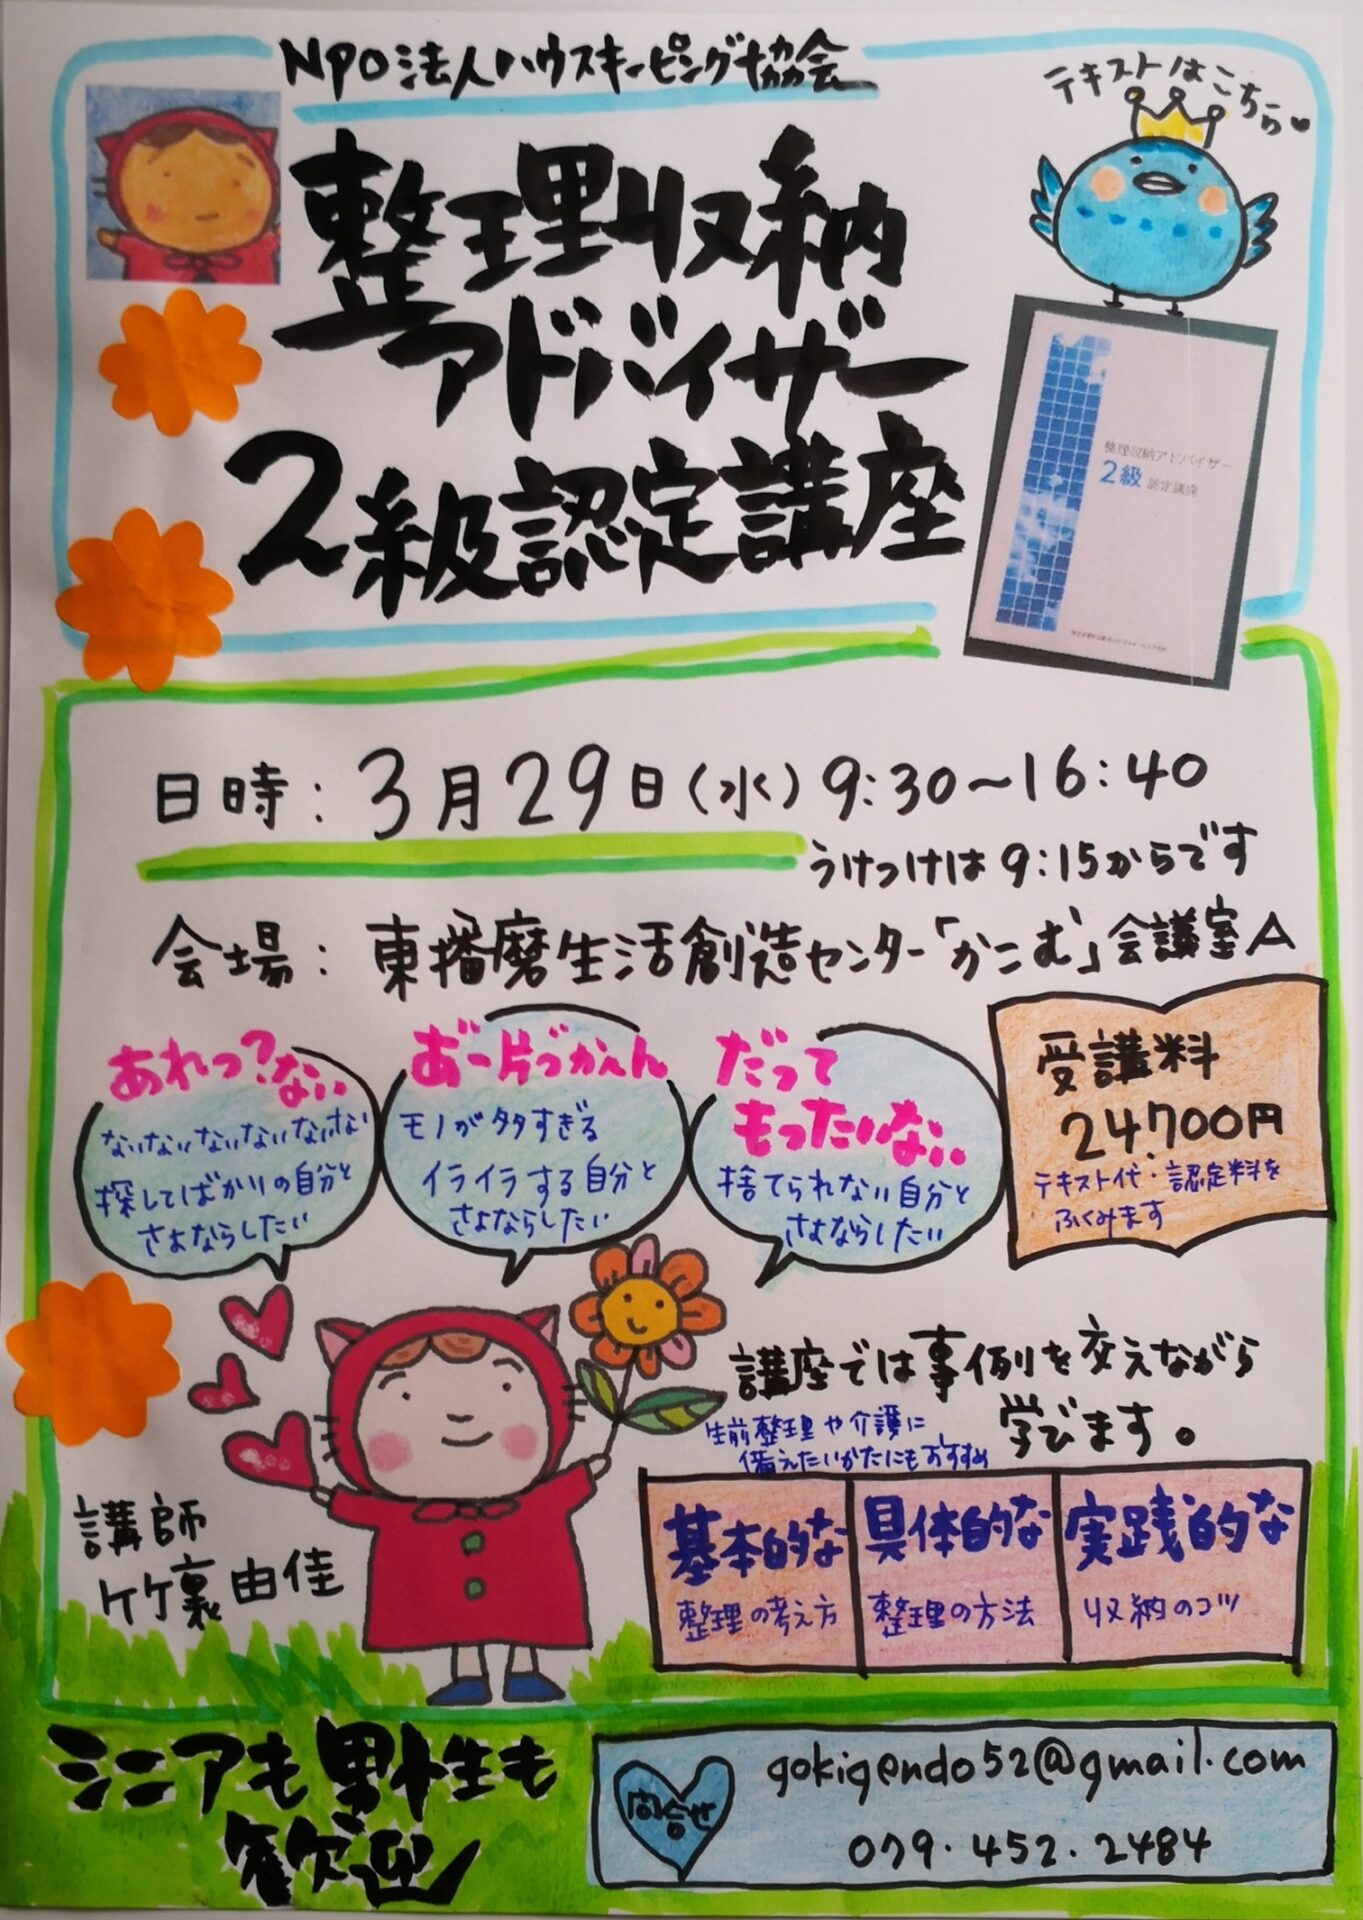 NPO法人ハウスキーピング協会
テキストはこちら
整理収納
アドバイザー
2級認定講座
整理収納アドバイザー
2級 認定講座
日時：3月29日(水)9:30～16:40
うけつけは9:15からです
会場：東播磨生活創造センター「かこむ」会議室A
あれっ?ない
ないないないないないない
探してばかりの自分と
さよならしたい
あ゛ー片づかへん
モノが多すぎる
イライラする自分と
さよならしたい
だって
もったいない
捨てられない自分と
さよならしたい
受講料
24,700円
テキスト代・認定料を
ふくみます
講座では事例を交えながら
学びます。
生前整理や介護に
備えたいかたにもおすすめ
基本的な
整理の考え方
具体的な
整理の方法
実践的な
収納のコツ
講師
竹裏由佳
シニアも男性も
歓迎
問合せ
gokigendo52@gmail.com
079.452.2484